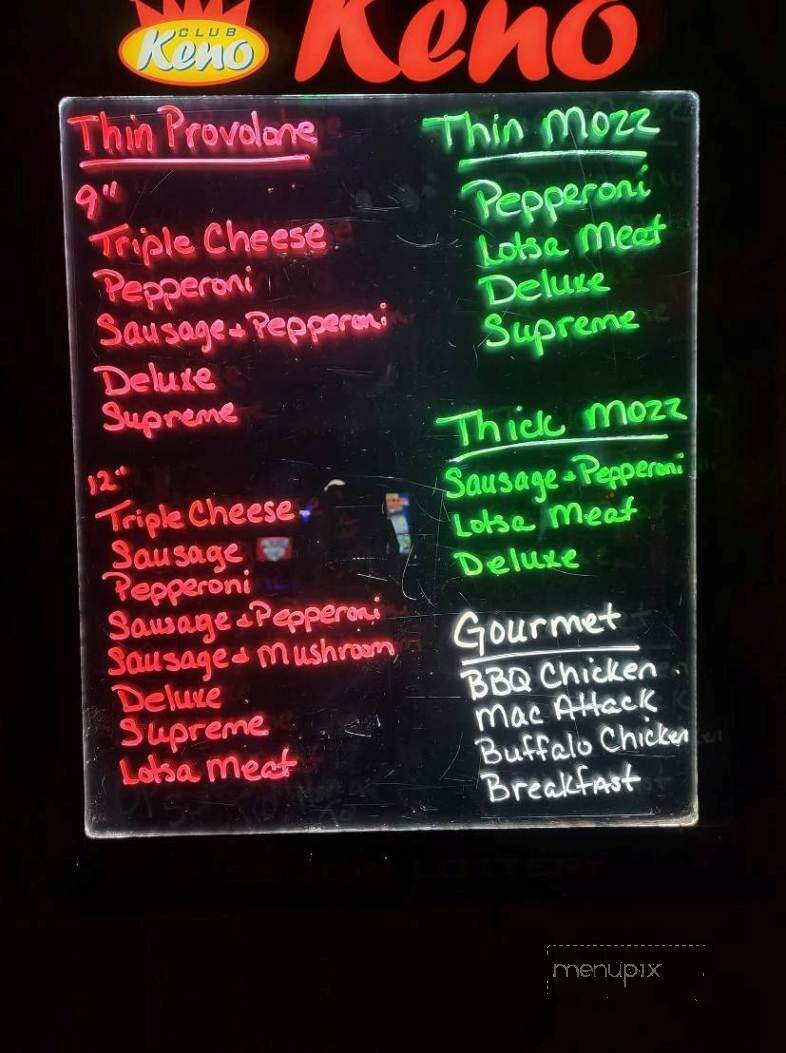 CLUB
Keno
Keno
Thin Provolone
9"
Triple Cheese
Pepperoni
Sausage + Pepperoni
Deluxe
Supreme
12"
Triple Cheese
Sausage
Pepperoni
Sausage + Pepperoni
Sausage + Mushroom
Deluxe
Supreme
Lotsa Meat
Thin Mozz
Pepperoni
Lotsa Meat
Deluxe
Supreme
Thick Mozz
Sausage + Pepperoni
Lotsa Meat
Deluxe
Gourmet
BBQ Chicken
Mac Attack
Buffalo Chicken
Breakfast
LOTTERY
menupix